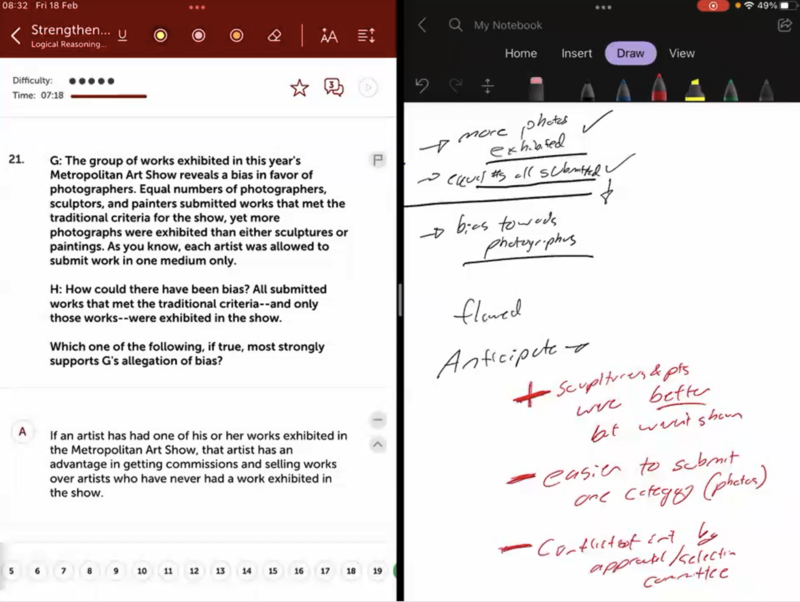 08:32 Fri 18 Apr
49%
Strengthen...
Logical Reasoning...
U
AA
My Notebook
Home Insert Draw View
Difficulty:
Time: 07:18
3
21. G: The group of works exhibited in this year's
Metropolitan Art Show reveals a bias in favor of
photographers. Equal numbers of photographers,
sculptors, and painters submitted works that met the
traditional criteria for the show, yet more
photographs were exhibited than either sculptures or
paintings. As you know, each artist was allowed to
submit work in one medium only.
H: How could there have been bias? All submitted
works that met the traditional criteria--and only
those works--were exhibited in the show.
Which one of the following, if true, most strongly
supports G's allegation of bias?
A If an artist has had one of his or her works exhibited in
the Metropolitan Art Show, that artist has an
advantage in getting commissions and selling works
over artists who have never had a work exhibited in
the show.
5 6 7 8 9 10 11 12 13 14 15 16 17 18 19
→ more photos
exhibited
→ equal #s all submitted
→ bias towards
photographers
flawed
Anticipate →
+ sculptures & pts
were better
but weren't shown
- easier to submit
one category (photos)
- Conflict of int by
approval/selection
committee